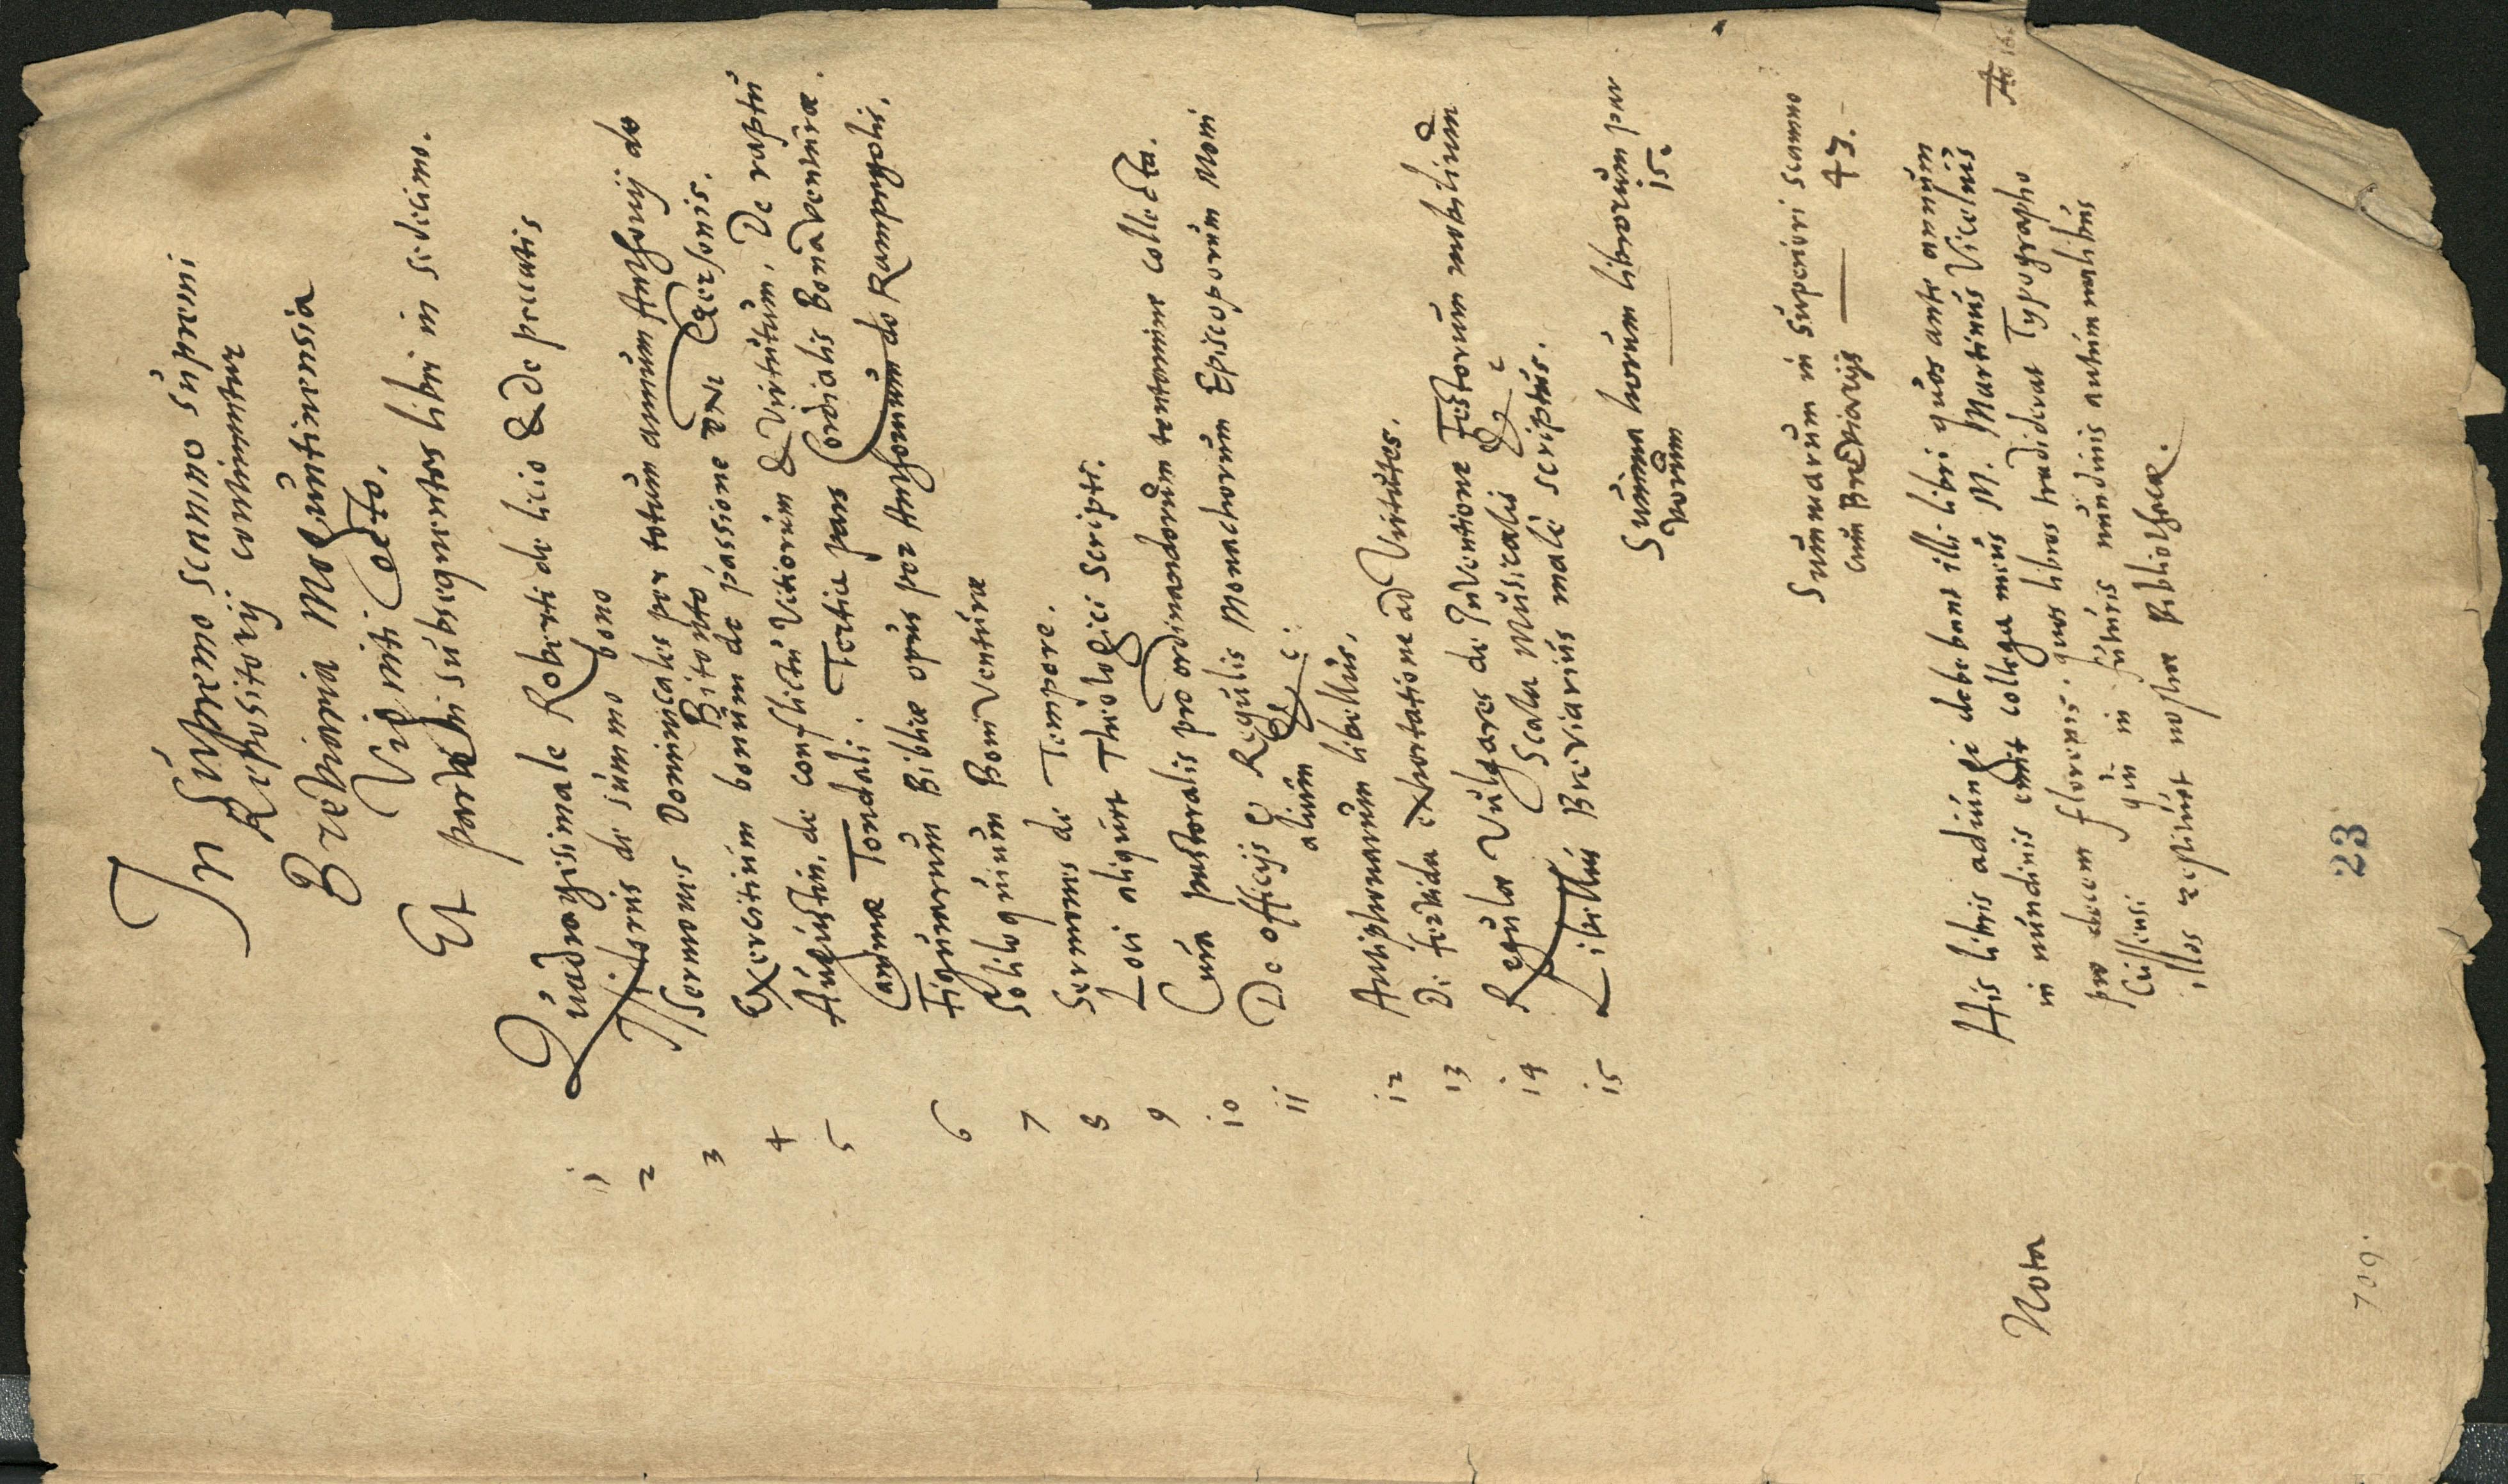 In Supremo scamno supremi
Repositorij continentur
Breviaria Moguntinensia
Viginti Octo.
Et parvi subsequentes libri in sedecimo.
1 Quadragesimale Roberti de licio & de peccatis
2 Isidorus de summo bono
3 Sermones Dominicales per totum annum Anthonij de
Bitonto
4 Exercitium bonum de passione Gersonis.
5 Augustin. de conflictu Vitiorum & Virtutum, De raptu
animae Tondali. Tertia pars Cordialis Bonaventurae.
6 Figurarum Bibliae opus per Anthonium de Rampigolis.
7 Soliloquium Boniventurae
8 Sermones de Tempore.
9 Loci aliquot Theologici scripti.
10 Cura pastoralis pro ordinandorum tentamine collecta.
11 De officijs & Regulis Monachorum Episcoporum Moni
alium &c:
12 Antiphonarum libellus,
13 De fervida exhortatione ad Virtutes.
14 Regulae Vulgares de Inventione Festorum mobilium
Scala Musicalis &c
15 Libellus Breviarius male scriptus.
Summa horum librorum par
vorum 15.
Summarum in superiori scamno
cum Breviarijs — 43.
Nota His libris adiungi debebant illi libri quos ante annum
in nundinis emit collega meus M. Martinus Vicelius
pro decem florenis. quos libros tradiderat Typographo
qui in futuris nundinis autumnalibus
illos restituet nostrae Bibliothecae.
23
709.